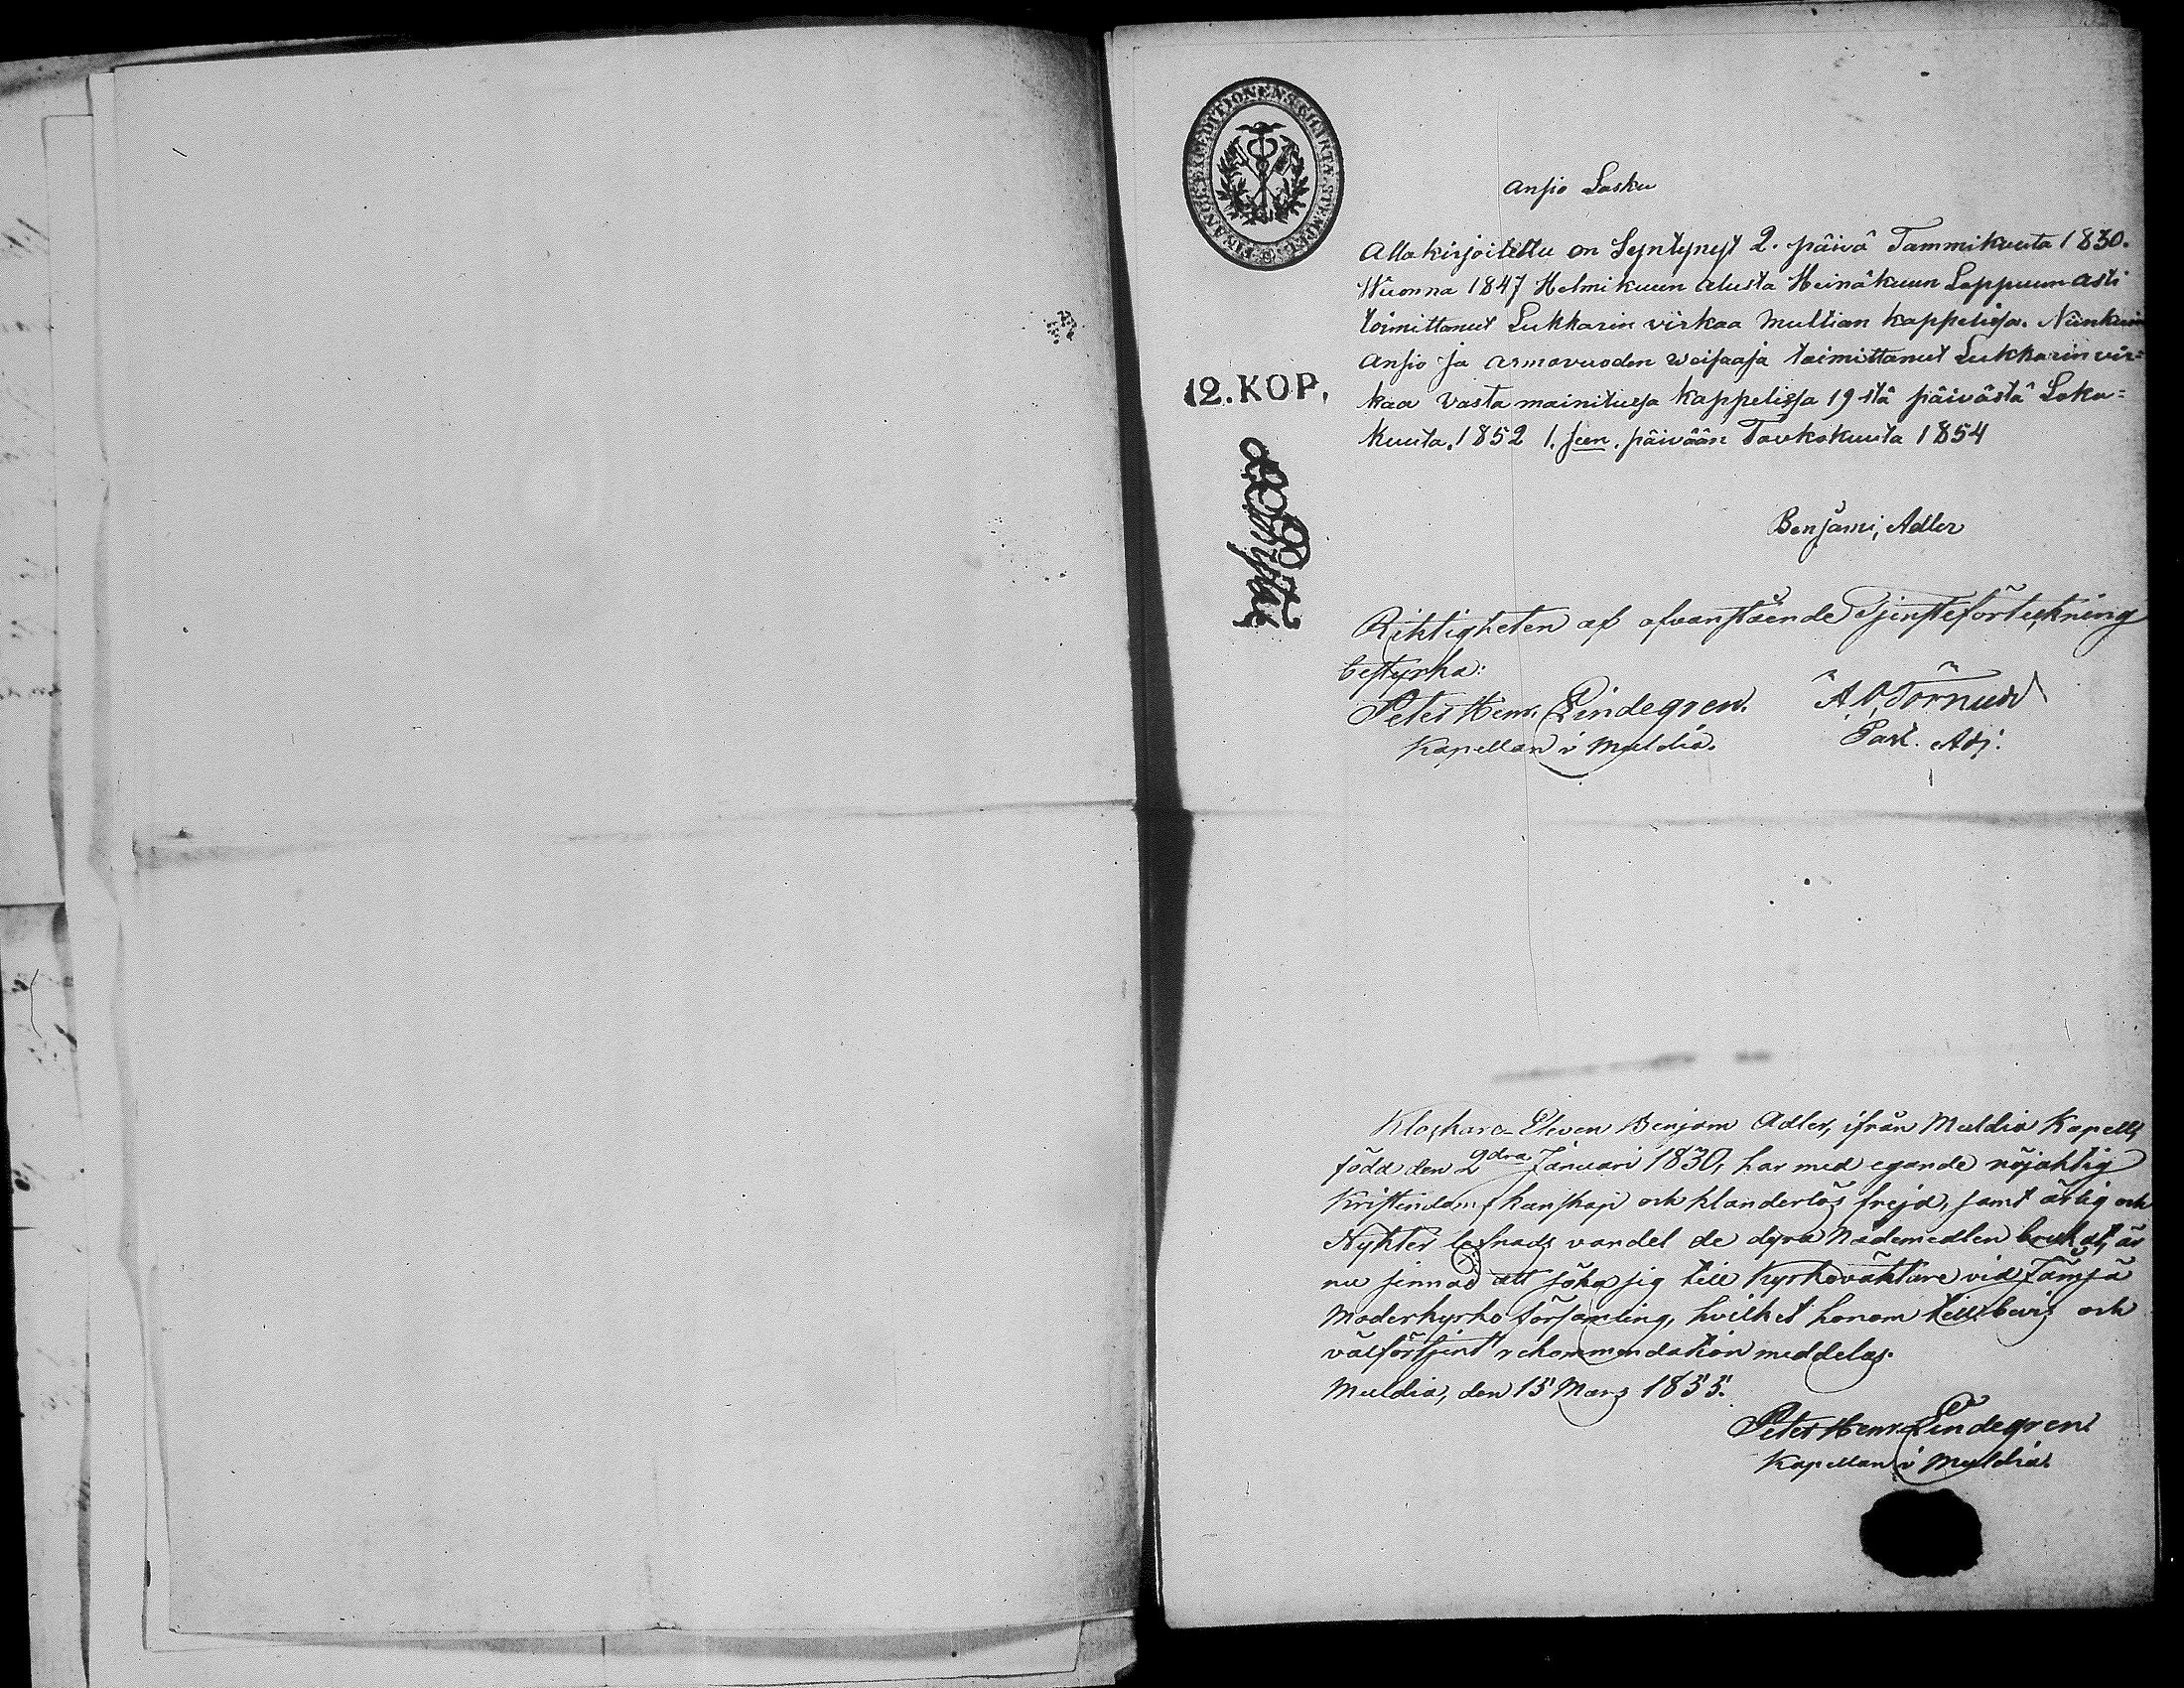 FINANCE EXPEDITIONENS CHARTÆ STEMPEL
12. KOP.
Ansio Lasku
Alla kirjoitettu on Syntynyt 2. päivä Tammikuuta 1830.
Wuonna 1847 Helmikuun alusta Heinäkuun Loppuun asti
toimittanut Lukkarin virkaa Multian kappelissa. Niinkuin
ansio ja armovuoden Weisaaja toimittanut Lukkarin vir=
kaa Vasta mainitussa kappelissa 19-stä päivästä Loka=
kuuta. 1852 1. seen. päivään Toukokuuta 1854
Benjami, Adler
Riktigheten af ofvanstående Tjensteförtekning
bestyrka:
Peter Henr. Lindegren. A. V. Törnudd
Kapellan i Muldia. Past. Adj.
Klockare-Eleven Benjam Adler, ifrån Muldia Kapell,
född den 2dra Januari 1830, har med egande nöjaktig
Kristendoms kunskap och klanderlös frejd, samt ärlig och
Nykter lefnads vandel de dyra Nådemedlen brukat, är
nu sinnad att söka sig till Kyrkoväktare vid Jämsä
Moderkyrko församling, hvilket honom till bevis och
välförtjent rekommendation meddelas.
Muldia, den 15 Mars 1855.
Peter Henr. Lindegren
Kapellan i Muldia.